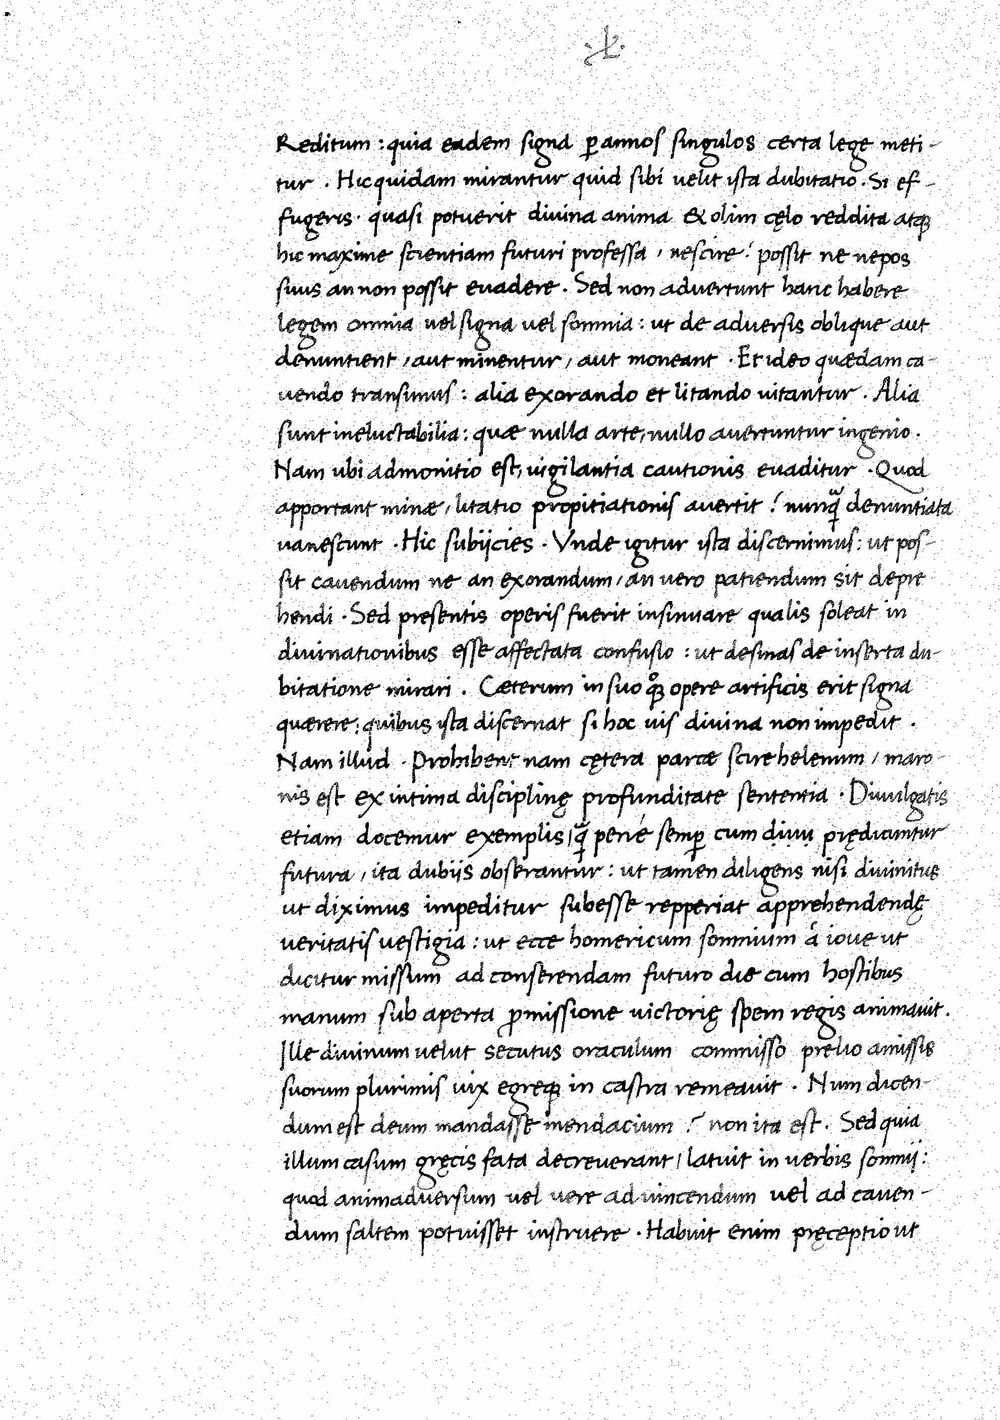 Reditum : quia eadem signa ꝑ annos singulos certa lege meti-
tur . Hic quidam mirantur quid sibi uelit ista dubitatio . Si ef-
fugeris · quasi potuerit diuina anima & olim cęlo reddita atqꝫ
hic maxime scientiam futuri professa , nescire ? possit ne nepos
suus an non possit euadere . Sed non aduertunt hanc habere
legem omnia uel signa uel somnia : ut de aduersis oblique aut
denuntient , aut minentur , aut moneant · Et ideo quædam ca-
uendo transimus : alia exorando et litando uitantur . Alia
sunt ineluctabilia : quæ nulla arte, nullo auertuntur ingenio .
Nam ubi admonitio est, uigilantia cautionis euaditur · Quod
apportant minæ , litatio propitiationis auertit ? nunq̃ denuntiata
uanescunt · Hic subijcies · Vnde igitur ista discernimus : ut pos-
sit cauendum ne an exorandum , an uero patiendum sit depre
hendi · Sed presentis operis fuerit insinuare qualis soleat in
diuinationibus esse affectata confusio : ut desinas de inserta du-
bitatione mirari . Cæterum in suo qꝫ opere artificis erit signa
quærere : quibus ista discernat si hoc uis diuina non impedit .
Nam illud · Prohibent nam cętera parcæ scire helenum , maro-
nis est ex intima disciplinę profunditate sententia · Diuulgatis
etiam docemur exemplis, q̃ penè semꝑ cum diuu prędicuntur
futura , ita dubijs obserantur : ut tamen diligens nisi diuinitus
ut diximus impeditur subesse repperiat apprehendendę
ueritatis uestigia : ut ecce homericum somnium á ioue ut
dicitur missum ad conserendam futuro die cum hostibus
manum sub aperta ꝓmissione uictorię spem regis animauit .
Ille diuinum uelut secutus oraculum commisso prelio amissis
suorum plurimis uix egreqꝫ in castra remeauit . Num dicen-
dum est deum mandasse mendacium ? non ita est . Sed quia
illum casum gręcis fata decreuerant , latuit in uerbis somnij :
quod animaduersum uel uere ad uincendum uel ad cauen-
dum saltem potuisset instruere · Habuit enim pręceptio ut